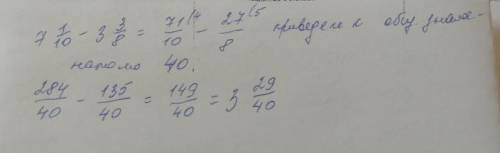 7 1/10 - 3 3/8 = 71/10 (4 - 27/8 (5 приведем к общ. знаме-
нателю 40.
284/40 - 135/40 = 149/40 = 3 29/40